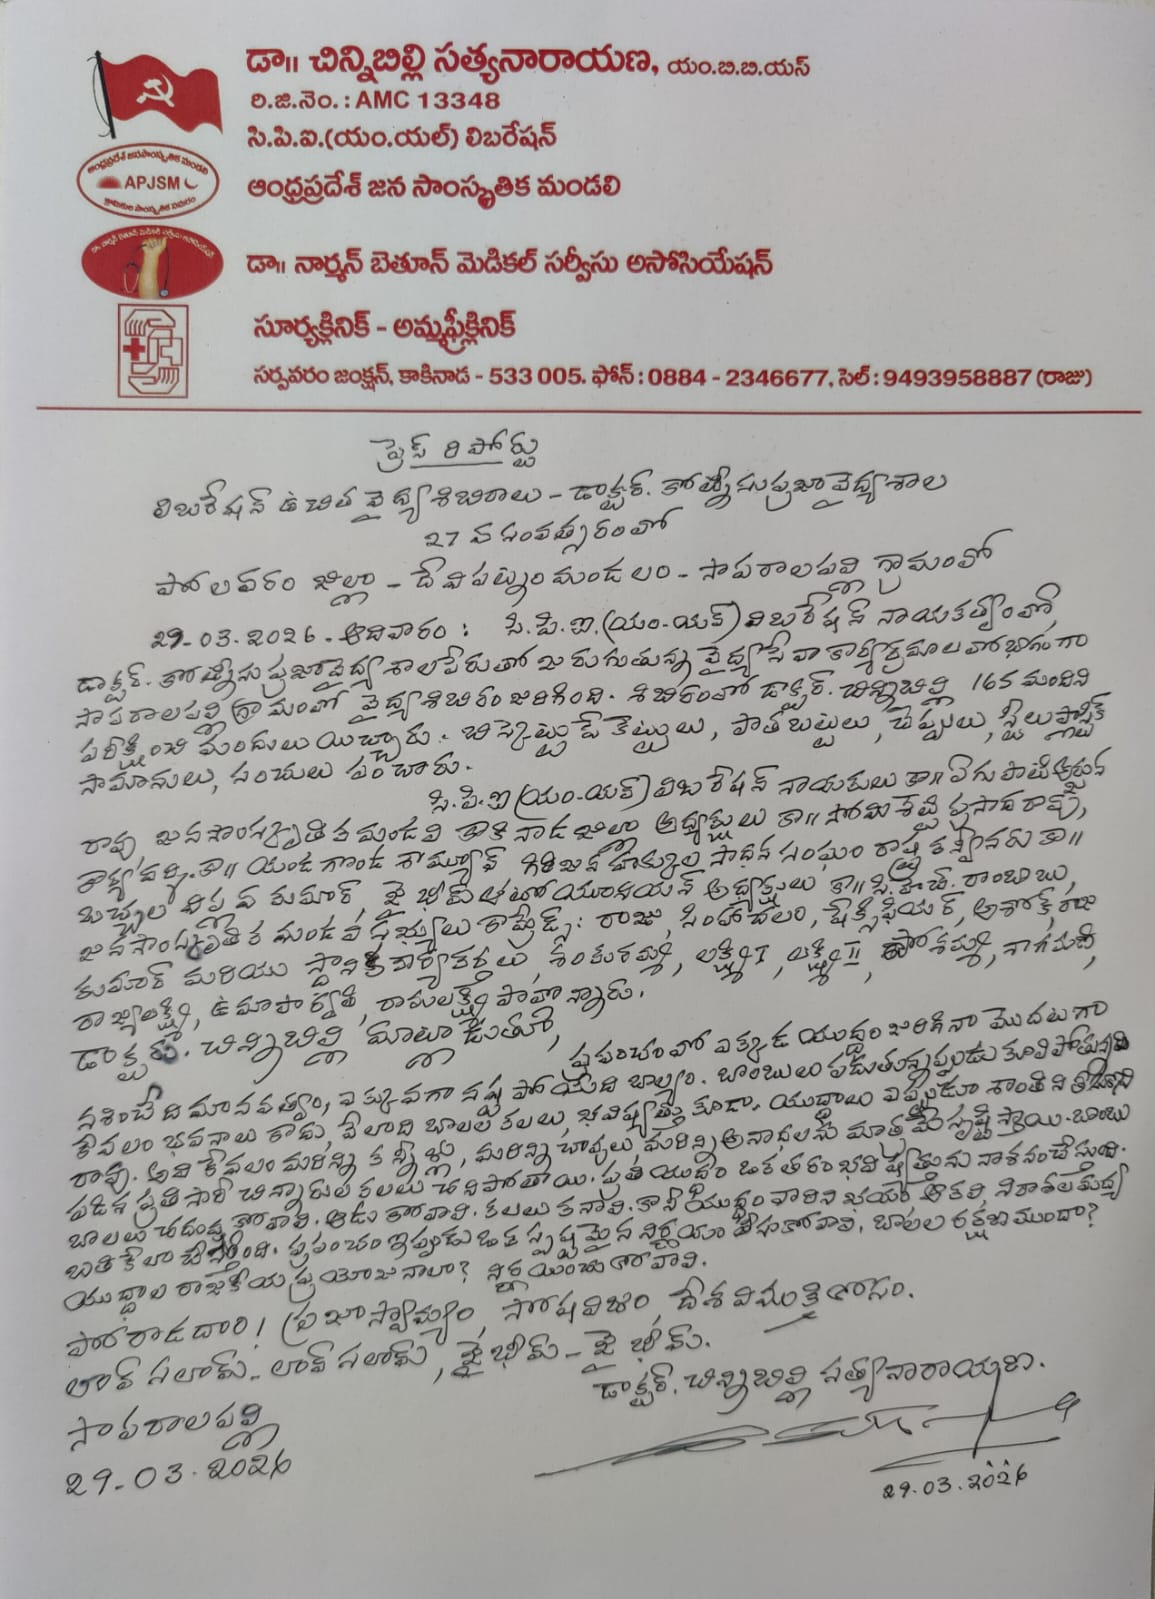 డా॥ చిన్నిబిల్లి సత్యనారాయణ, యం.బి.బి.యస్
రి.జి.నెం. : AMC 13348
సి.పి.ఐ.(యం.యల్) లిబరేషన్
ఆంధ్రప్రదేశ్ జన సాంస్కృతిక మండలి
APJSM
డా॥ నార్మన్ బెతూన్ మెడికల్ సర్వీసు అసోసియేషన్
సూర్యక్లినిక్ - అమ్మఫ్రీక్లినిక్
సర్పవరం జంక్షన్, కాకినాడ - 533 005. ఫోన్ : 0884 - 2346677, సెల్ : 9493958887 (రాజు)
ప్రెస్ రిపోర్టు
లిబరేషన్ ఉచిత వైద్యశిబిరాలు - డాక్టర్. కోట్నీసు ప్రజావైద్యశాల
27 వ సంవత్సరంలో
పోలవరం జిల్లా - దేవిపట్నం మండలం - సాపరాలపల్లి గ్రామంలో
29-03-2026- ఆదివారం : సి.పి.ఐ.(యం-యల్) లిబరేషన్ నాయకత్వంలో,
డాక్టర్. కోట్నీసు ప్రజావైద్యశాల పేరుతో జరుగుతున్న వైద్యసేవా కార్యక్రమాలలో భాగంగా
సాపరాలపల్లి గ్రామంలో వైద్యశిబిరం జరిగింది. శిబిరంలో డాక్టర్. చిన్నిబిల్లి 165 మందిని
పరీక్షించి మందులు యిచ్చారు. బిస్కెట్టు పేకెట్టులు, పాతబట్టలు, చెప్పులు, స్టీలు ప్లాస్టిక్
సామానులు, సంచులు పంచారు.
సి.పి.ఐ (యం-యల్) లిబరేషన్ నాయకులు కా॥ ఏగుపాటి అర్జున్
రావు, జనసాంస్కృతిక మండలి కాకినాడ జిల్లా అధ్యక్షులు కా॥ సోమిశెట్టి ప్రసాదరావు,
కార్యదర్శి. కా॥ యండగొండ శామ్యూల్ గిరిజన హక్కుల సాధన సంఘం రాష్ట్ర కన్వీనరు కా॥
బచ్చల విప్లవ కుమార్, జై భీమ్ ఆటో యూనియన్ అధ్యక్షులు కా॥ సి.హెచ్. రాంబాబు,
జనసాంస్కృతిక మండలి సభ్యులు కామ్రేడ్స్ : రాజు, సింహాచలం, షేక్స్పియర్, అశోక్, రాజ
కుమార్ మరియు స్థానిక కార్యకర్తలు, శంకురమ్మ, లక్ష్మి I, లక్ష్మి II, పోశమ్మ, నాగమణి,
రాజ్యలక్ష్మి, ఉమాపార్వతి, రామలక్ష్మి పాల్గొన్నారు.
డాక్టర్. చిన్నిబిల్లి మాట్లాడుతూ,
ప్రపంచంలో ఎక్కడ యుద్ధం జరిగినా మొదటగా
నశించేది మానవత్వం, ఎక్కువగా నష్టపోయేది బాల్యం. బాంబులు పడుతున్నప్పుడు కూలిపోతున్నది
కేవలం భవనాలు కాదు, వేలాది బాలల కలలు, భవిష్యత్తు కూడా. యుద్ధాలు ఎప్పుడూ శాంతిని తీసుకొని
రావు. అవి కేవలం మరిన్ని కన్నీళ్లు, మరిన్ని చావులు, మరిన్ని అనాధలను మాత్రమే సృష్టిస్తాయి. బాంబు
పడిన ప్రతిసారీ చిన్నారుల కలలు చనిపోతాయి. ప్రతి యుద్ధం ఒక తరం భవిష్యత్తును నాశనం చేస్తుంది.
బాలలు చదువుకోవాలి. ఆడుకోవాలి. కలలు కనాలి. కానీ యుద్ధం వారిని భయం, ఆకలి, నిరాశల మధ్య
బతికేలా చేస్తుంది. ప్రపంచం ఇప్పుడు ఒక స్పష్టమైన నిర్ణయం తీసుకోవాలి, బాలల రక్షణ ముందా?
యుద్ధాల రాజకీయ ప్రయోజనాలా? నిర్ణయించుకోవాలి.
పోరాడదాం! ప్రజాస్వామ్యం, సోషలిజం, దేశవిముక్తికోసం.
లాల్ సలామ్- లాల్ సలామ్, జై భీమ్ - జై భీమ్.
డాక్టర్. చిన్నిబిల్లి సత్యనారాయణ.
సాపరాలపల్లి
29-03-2026
29.03.2026